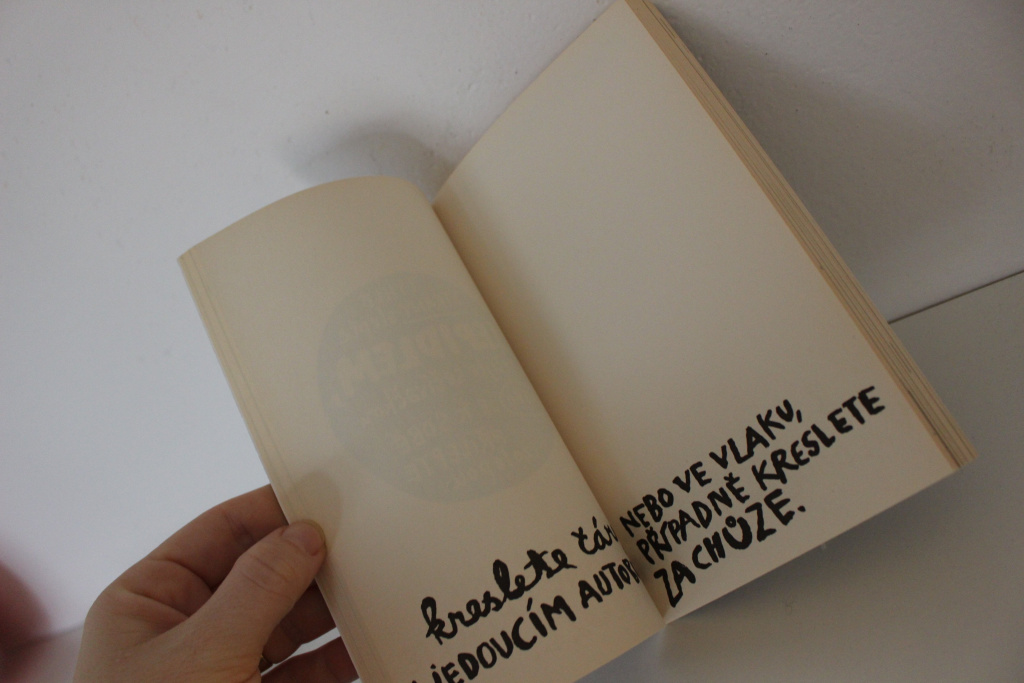 kreslete čár
JEDOUCÍM AUTOB
NEBO VE VLAKU,
PŘÍPADNĚ KRESLETE
ZA CHŮZE.